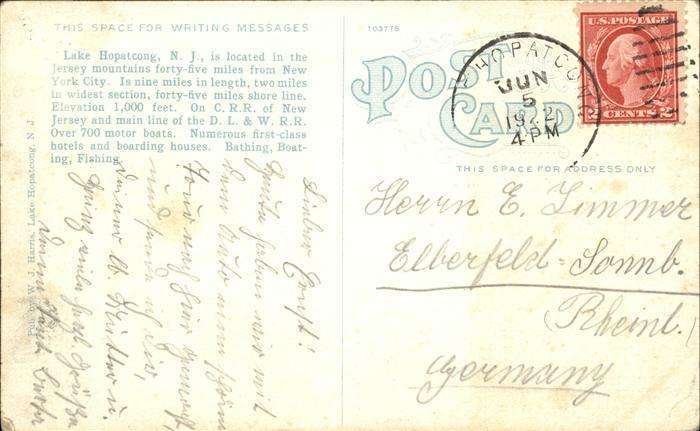 THIS SPACE FOR WRITING MESSAGES
Lake Hopatcong, N. J., is located in the
Jersey mountains forty-five miles from New
York City. Is nine miles in length, two miles
in widest section, forty-five miles shore line.
Elevation 1,000 feet. On C. R. R. of New
Jersey and main line of the D. L. & W. R.R.
Over 700 motor boats. Numerous first-class
hotels and boarding houses. Bathing, Boat-
ing, Fishing.
W. J. Harris, Lake Hopatcong, N. J.
Lieber Ernst!
Heute haben wir mit
dem Auto eine schöne
Tour nach hier gemacht
und senden wir dir,
deiner lb. Mutter u.
103775
POST
CARD
HOPATCONG
JUN
5
1922
4 PM
U.S. POSTAGE
2 CENTS 2
THIS SPACE FOR ADDRESS ONLY
Herrn E. Zimmer
Elberfeld-Sonnb.
(Rheinl.)
Germany